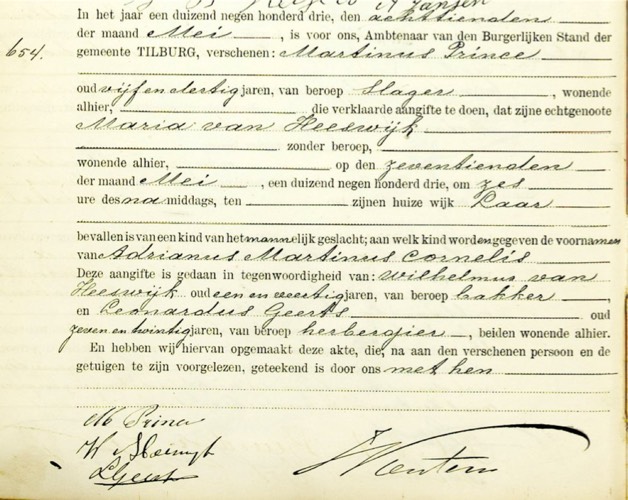 Jansen
In het jaar een duizend negen honderd drie, den achttienden
der maand Mei, is voor ons, Ambtenaar van den Burgerlijken Stand der
654.
gemeente TILBURG, verschenen: Martinus Prince
oud vijf en dertig jaren, van beroep Slager, wonende
alhier, die verklaarde aangifte te doen, dat zijne echtgenoote
Maria van Heeswijk
zonder beroep,
wonende alhier, op den zeventienden
der maand Mei, een duizend negen honderd drie, om zes
ure des na middags, ten zijnen huize wijk Laar
bevallen is van een kind van het mannelijk geslacht; aan welk kind worden gegeven de voornamen
van Adrianus Martinus Cornelis
Deze aangifte is gedaan in tegenwoordigheid van: Wilhelmus van
Heeswijk oud een en veertig jaren, van beroep bakker,
en Leonardus Geerts oud
zeven en twintig jaren, van beroep herbergier, beiden wonende alhier.
En hebben wij hiervan opgemaakt deze akte, die, na aan den verschenen persoon en de
getuigen te zijn voorgelezen, geteekend is door ons met hen
M Prince
LGeerts